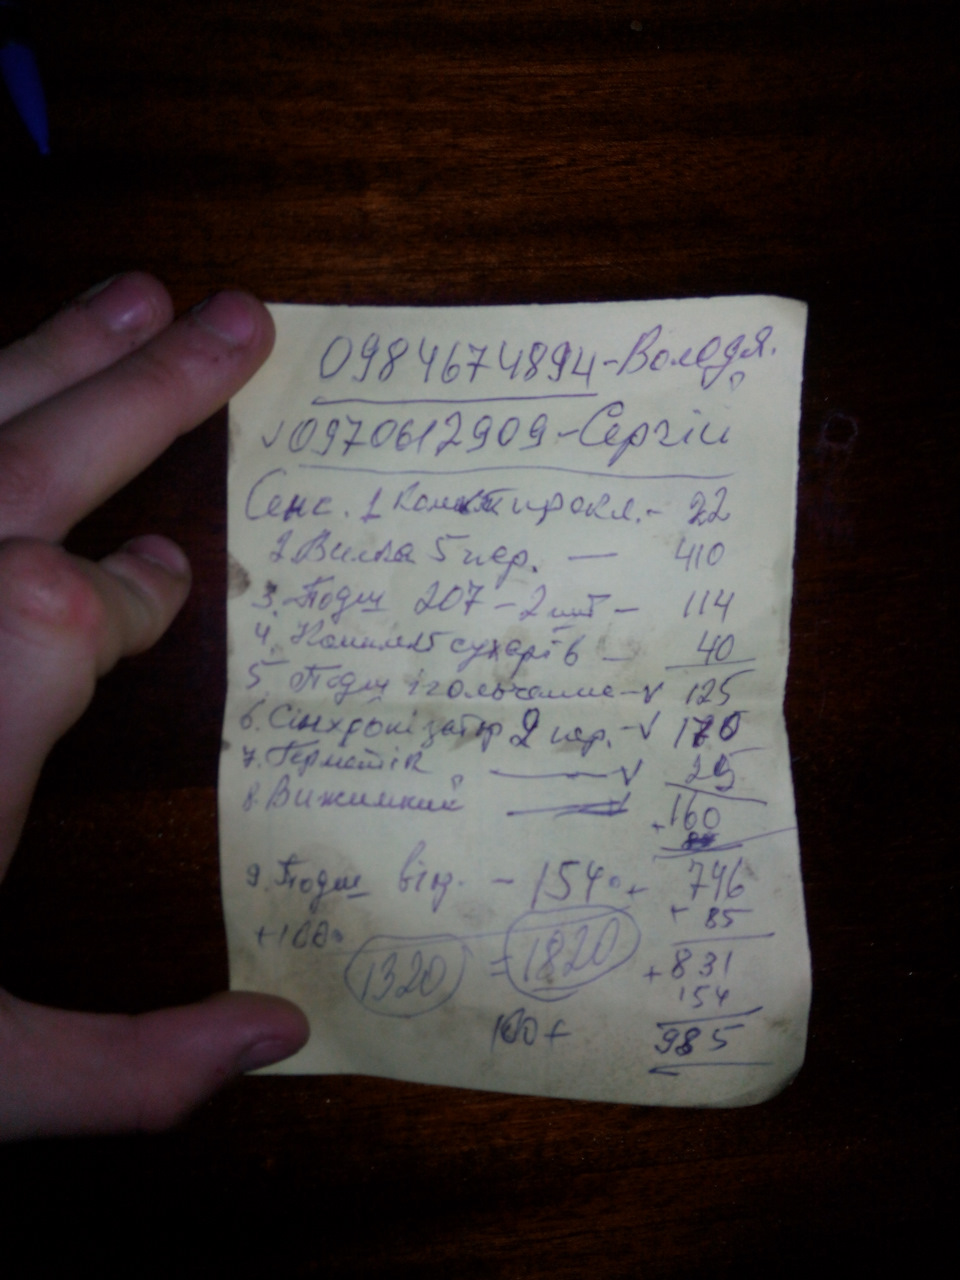 0984674894-Володя.
✓0970612909-Сергій
Сенс. 1 Комкт прокл. - 22
2 Вилка 5 пер. — 410
3. Подш 207 - 2 шт - 114
4. Комплект сухарів - 40
5 Подш ігольчате - ✓ 125
6. Сінхронізатор 2 пер. - ✓ 170
7. Герметік — ✓ 25
8. Вижимний — ✓ +160
9. Подш - 154 + 746
+ 85
1320 = 1820 + 831
154
100 + 985